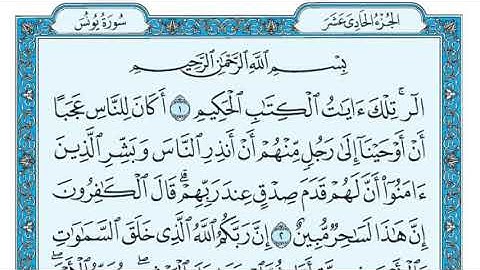 سُورَةُ يُونُسَ
الجُزْءُ الحَادِى عَشَرَ
بِسْمِ ٱللَّهِ ٱلرَّحْمَٰنِ ٱلرَّحِيمِ
الٓر ۚ تِلْكَ ءَايَٰتُ ٱلْكِتَٰبِ ٱلْحَكِيمِ ١ أَكَانَ لِلنَّاسِ عَجَبًا
أَنْ أَوْحَيْنَآ إِلَىٰ رَجُلٍ مِّنْهُمْ أَنْ أَنذِرِ ٱلنَّاسَ وَبَشِّرِ ٱلَّذِينَ
ءَامَنُوٓا۟ أَنَّ لَهُمْ قَدَمَ صِدْقٍ عِندَ رَبِّهِمْ ۗ قَالَ ٱلْكَٰفِرُونَ
إِنَّ هَٰذَا لَسَٰحِرٌ مُّبِينٌ ٢ إِنَّ رَبَّكُمُ ٱللَّهُ ٱلَّذِى خَلَقَ ٱلسَّمَٰوَٰتِ